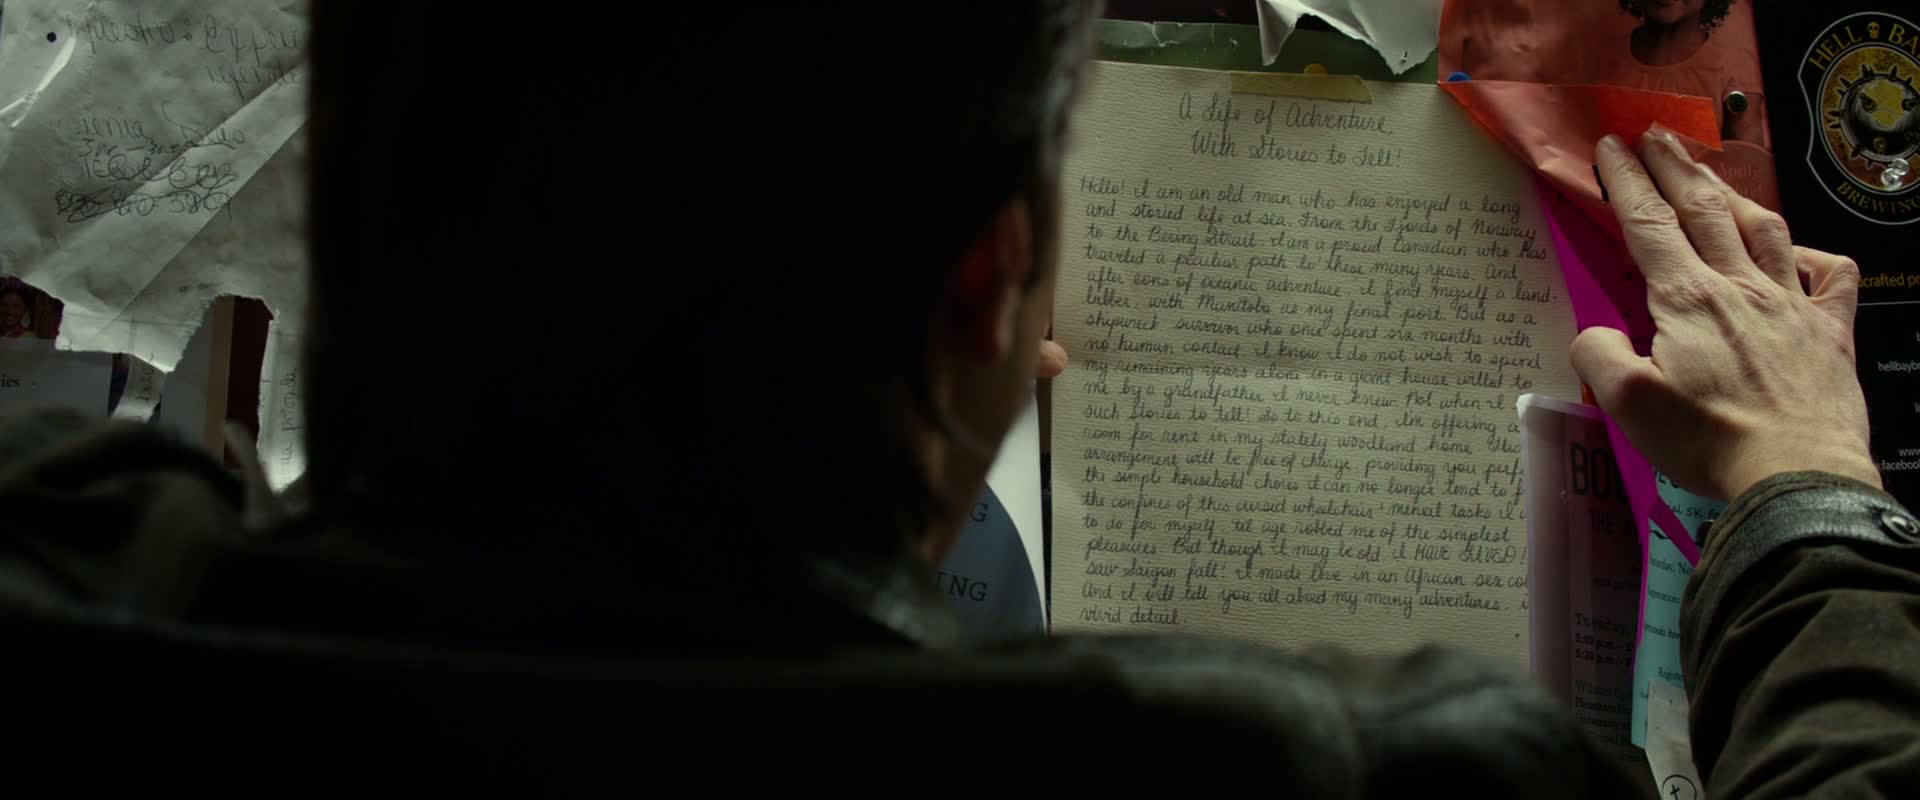 A Life of Adventure,
With Stories to Tell!
Hello! I am an old man who has enjoyed a long
and storied life at sea. From the Fjords of Norway
to the Bering Strait. I am a proud Canadian who has
traveled a peculiar path to these many years. And
after eons of oceanic adventure, I find myself a land-
lubber, with Manitoba as my final port. But as a
shipwreck survivor who once spent six months with
no human contact I know I do not wish to spend
my remaining years alone in a giant house willed to
me by a grandfather I never knew. Not when I
such stories to tell! So to this end, I'm offering a
room for rent in my stately woodland home. This
arrangement will be free of charge, providing you perf
the simple household chores I can no longer tend to f
the confines of this cursed wheelchair: menial tasks I
to do for myself, til age robbed me of the simplest
pleasures. But though I may be old I HAVE LIVED!
saw Saigon fall! I made love in an African sex co
And I will tell you all about my many adventures,
vivid detail.
HELL BA
BREWING
crafted pr
hellbaybr
www.
facebook
ies
G
ING
BO
THE
Tuesday,
5:00 p.m.
5:30 p.m.